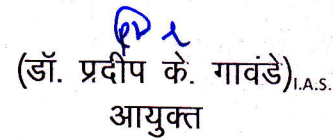 (डॉ. प्रदीप के. गावंडे)I.A.S.
आयुक्त